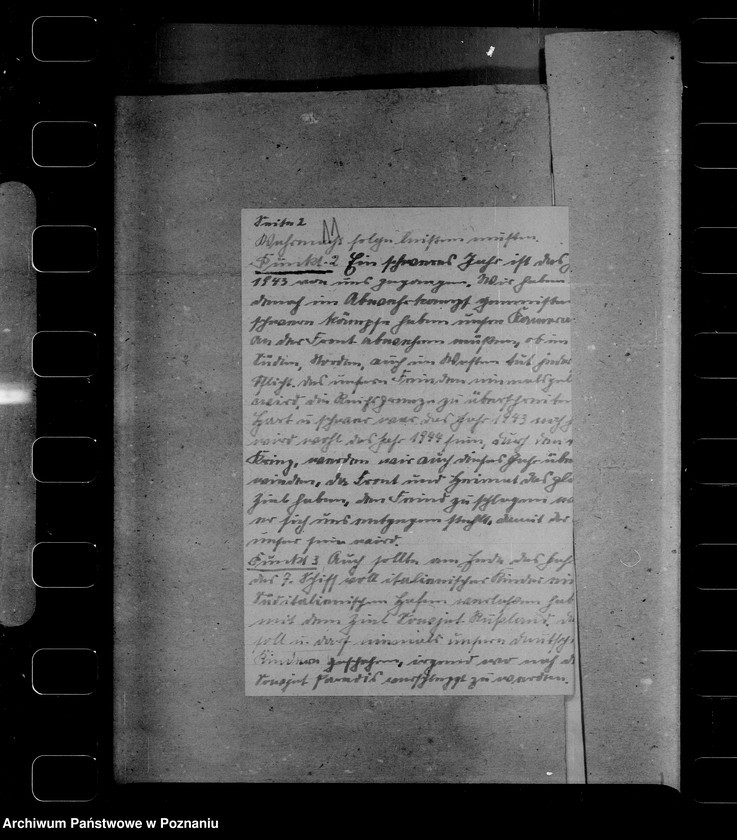 Seite 2
Wehrmacht folge leisten müssen.
Punkt 2 Ein schweres Jahr ist das
1943 von uns gegangen. Wir haben
danach im Abwehrkampf
schwere Kämpfe haben unsre Kamera
An der Front abwehren müssen, ob im
Süden, Norden, auch im Westen tut jeder
Pflicht. das unsern Feinden niemals
wird, die Reichsgrenze zu überschreiten
Hart u schwer war das Jahr 1943 noch
wird wohl das Jahr 1944 sein, durch den
Krieg, werden wir auch dieses Jahr übe
winden, da Front und Heimat das gle
Ziel haben, den Feind zu schlagen wo
er sich uns entgegen stellt, damit der
unser sein wird.
Punkt 3 Auch sollte am Ende des Jah
das 7. Schiff voll italienischer Kinder
Süditalienischen Hafen verlassen hab
mit dem Ziel Sowjet Rußland, da
soll u. darf niemals unsern deutsch
Kindern geschehen, irgend wo nach d
Sowjet Paradis verschleppt zu werden.
Archiwum Państwowe w Poznaniu